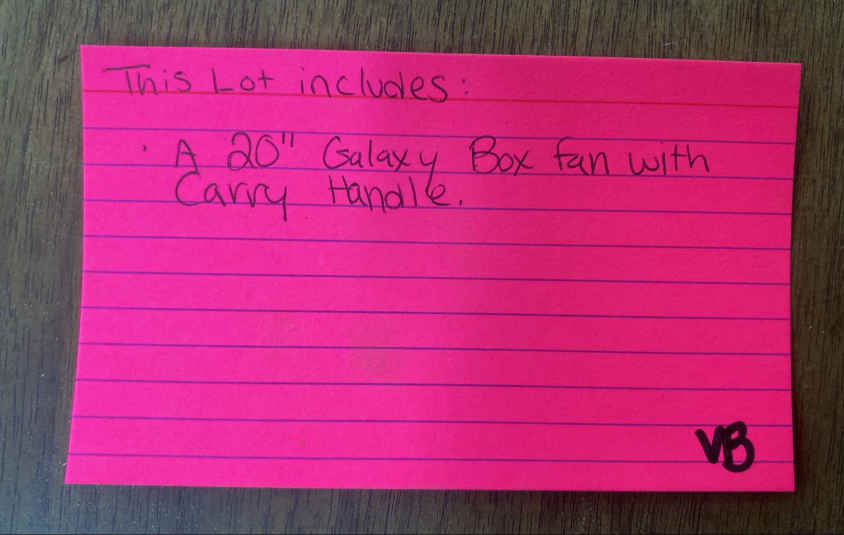 This Lot includes:
· A 20" Galaxy Box fan with
Carry Handle.
VB